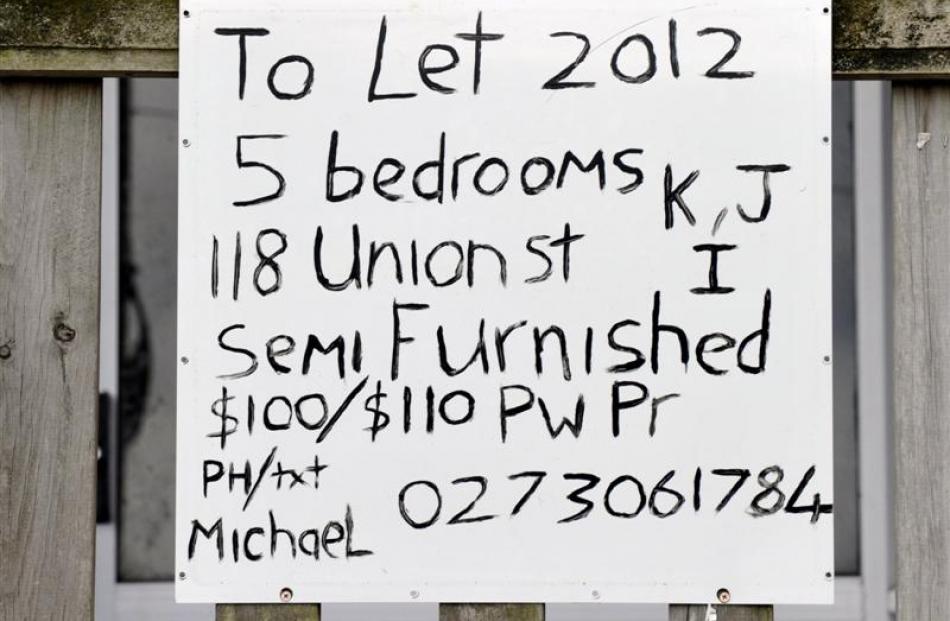 To Let 2012
5 bedrooms K, J
118 Union st I
Semi Furnished
$100/$110 PW Pr
PH/txt
Michael 0273061784